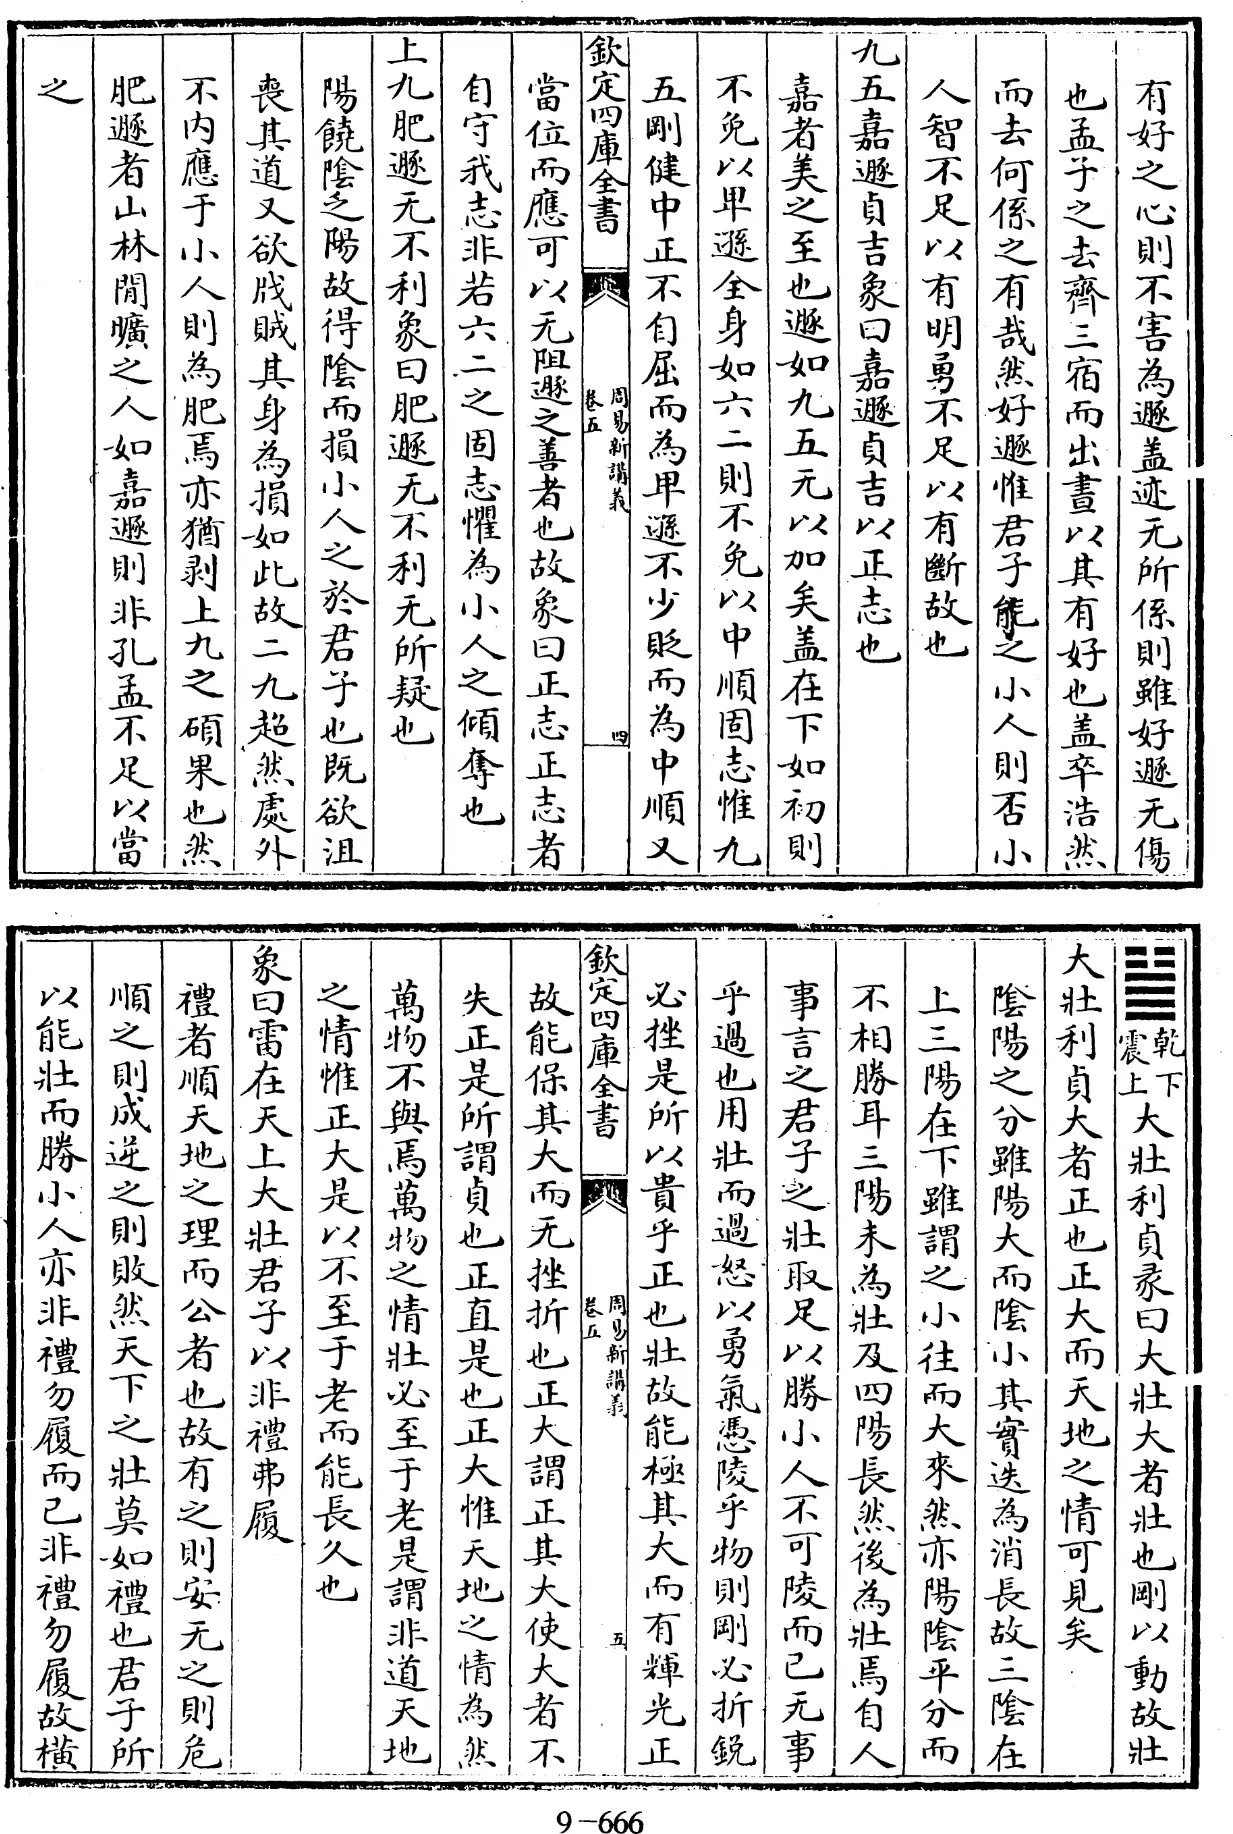 有好之心則不害為遯盖迹无所係則雖好遯无傷
也孟子之去齊三宿而出晝以其有好也盖卒浩然
而去何係之有哉然好遯惟君子能之小人則否小
人智不足以有明勇不足以有斷故也
九五嘉遯貞吉象曰嘉遯貞吉以正志也
嘉者美之至也遯如九五无以加矣盖在下如初則
不免以卑遜全身如六二則不免以中順固志惟九
五剛健中正不自屈而為卑遜不少貶而為中順又
欽定四庫全書
周易新講義
卷五
四
當位而應可以无阻遯之善者也故象曰正志正志者
自守我志非若六二之固志懼為小人之傾奪也
上九肥遯无不利象曰肥遯无不利无所疑也
陽饒陰乏陽故得陰而損小人之於君子也既欲沮
喪其道又欲戕賊其身為損如此故二九超然處外
不内應于小人則為肥焉亦猶剥上九之碩果也然
肥遯者山林閒曠之人如嘉遯則非孔孟不足以當
之
乾下
震上
大壯利貞彖曰大壯大者壯也剛以動故壯
大壯利貞大者正也正大而天地之情可見矣
陰陽之分雖陽大而陰小其實迭為消長故三陰在
上三陽在下雖謂之小往而大來然亦陽陰平分而
不相勝耳三陽未為壯及四陽長然後為壯焉自人
事言之君子之壯取足以勝小人不可陵而已无事
乎過也用壯而過怒以勇氣憑陵乎物則剛必折鋭
必挫是所以貴乎正也壯故能極其大而有輝光正
欽定四庫全書
周易新講義
卷五
五
故能保其大而无挫折也正大謂正其大使大者不
失正是所謂貞也正直是也正大惟天地之情為然
萬物不與焉萬物之情壯必至于老是謂非道天地
之情惟正大是以不至于老而能長久也
象曰雷在天上大壯君子以非禮弗履
禮者順天地之理而公者也故有之則安无之則危
順之則成逆之則敗然天下之壯莫如禮也君子所
以能壯而勝小人亦非禮勿履而已非禮勿履故橫
9-666